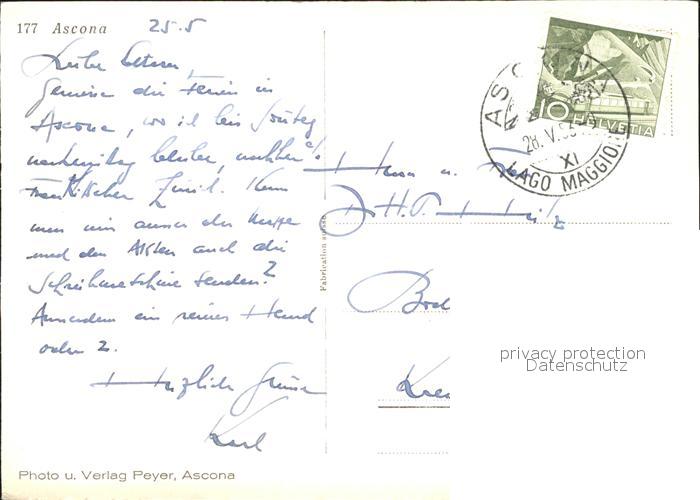 177 Ascona 25.5
Liebe Eltern,
Geniesse die Ferien in
Ascona, wo ich bis Sonntag
nachmittag bleibe, nachher c/o
Zürich. Kann
man mir ausser der Mappe
und den Akten auch die
Schreibmaschine senden?
Ausserdem ein reines Hemd
oder 2.
Herzliche Grüsse
Karl
Photo u. Verlag Peyer, Ascona
Fabrication suisse
10 HELVETIA
ASCONA
28.V.53
XI
LAGO MAGGIORE
Herrn u. Frau
Dr. H.
privacy protection
Datenschutz